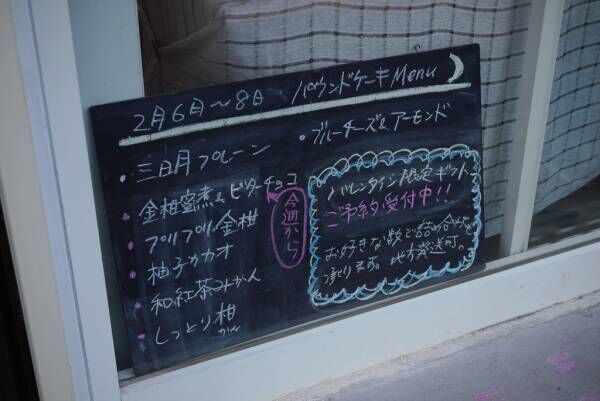 2月6日〜8日 パウンドケーキMenu
・三日月プレーン
・ブルーチーズ&アーモンド
・金柑蜜煮&ビターチョコ
今週から
・プリプリ金柑
・柚子カカオ
・和紅茶みかん
・しっとり柑
かん
バレンタイン限定ギフト
ご予約受付中!!
お好きな数で詰め合わせ
承ります。地方発送可。